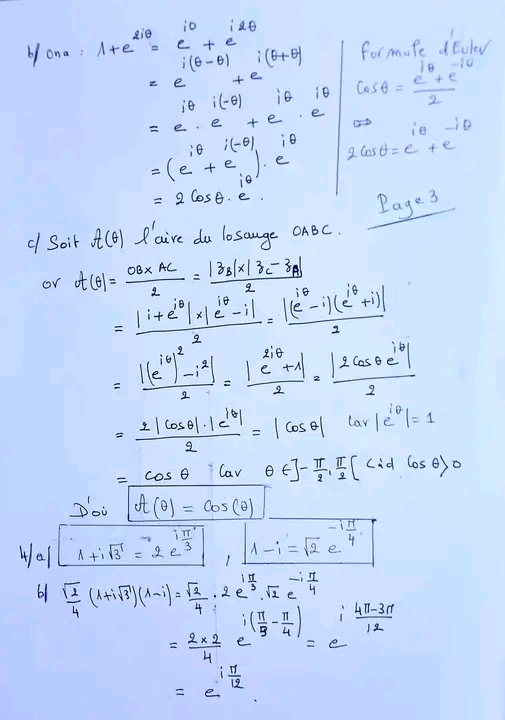 b/ ona : 1+e^{2iθ} = e^{i0} + e^{i2θ}
= e^{i(θ-θ)} + e^{i(θ+θ)}
= e^{iθ} . e^{i(-θ)} + e^{iθ} . e^{iθ}
= (e^{iθ} + e^{i(-θ)}) . e^{iθ}
= 2 cosθ . e^{iθ} .
Formule d'Euler
Cosθ = (e^{iθ} + e^{-iθ})/2
⇔
2Cosθ = e^{iθ} + e^{-iθ}
Page 3
c/ Soit A(θ) l'aire du losange OABC.
or A(θ) = (OB × AC)/2 = (|z_B| × |z_C - z_A|)/2
= (|i+e^{iθ}| × |e^{iθ} - i|)/2 = |(e^{iθ} - i)(e^{iθ} + i)|/2
= |(e^{iθ})² - i²|/2 = |e^{2iθ} + 1|/2 = |2cosθ e^{iθ}|/2
= (2|cosθ| . |e^{iθ}|)/2 = |cosθ| Car |e^{iθ}| = 1
= cosθ Car θ ∈ ]-π/2, π/2[ càd cosθ > 0
D'où A(θ) = cos(θ)
4/a/ 1+i√3 = 2 e^{iπ/3} , 1-i = √2 e^{-iπ/4}
b/ √2/4 (1+i√3)(1-i) = √2/4 . 2 e^{iπ/3} . √2 e^{-iπ/4}
= (2×2)/4 e^{i(π/3 - π/4)} = e^{i (4π-3π)/12}
= e^{iπ/12} .